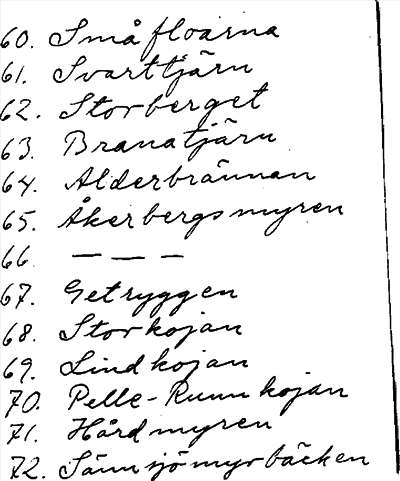 60. Småfloarna
61. Svarttjärn
62. Storberget
63. Branatjärn
64. Alderbrännan
65. Åkerbergsmyren
66. — — —
67. Getryggen
68. Storkojan
69. Lindkojan
70. Pelle-Runnkojan
71. Hårdmyren
72. Sännsjömyrbäcken